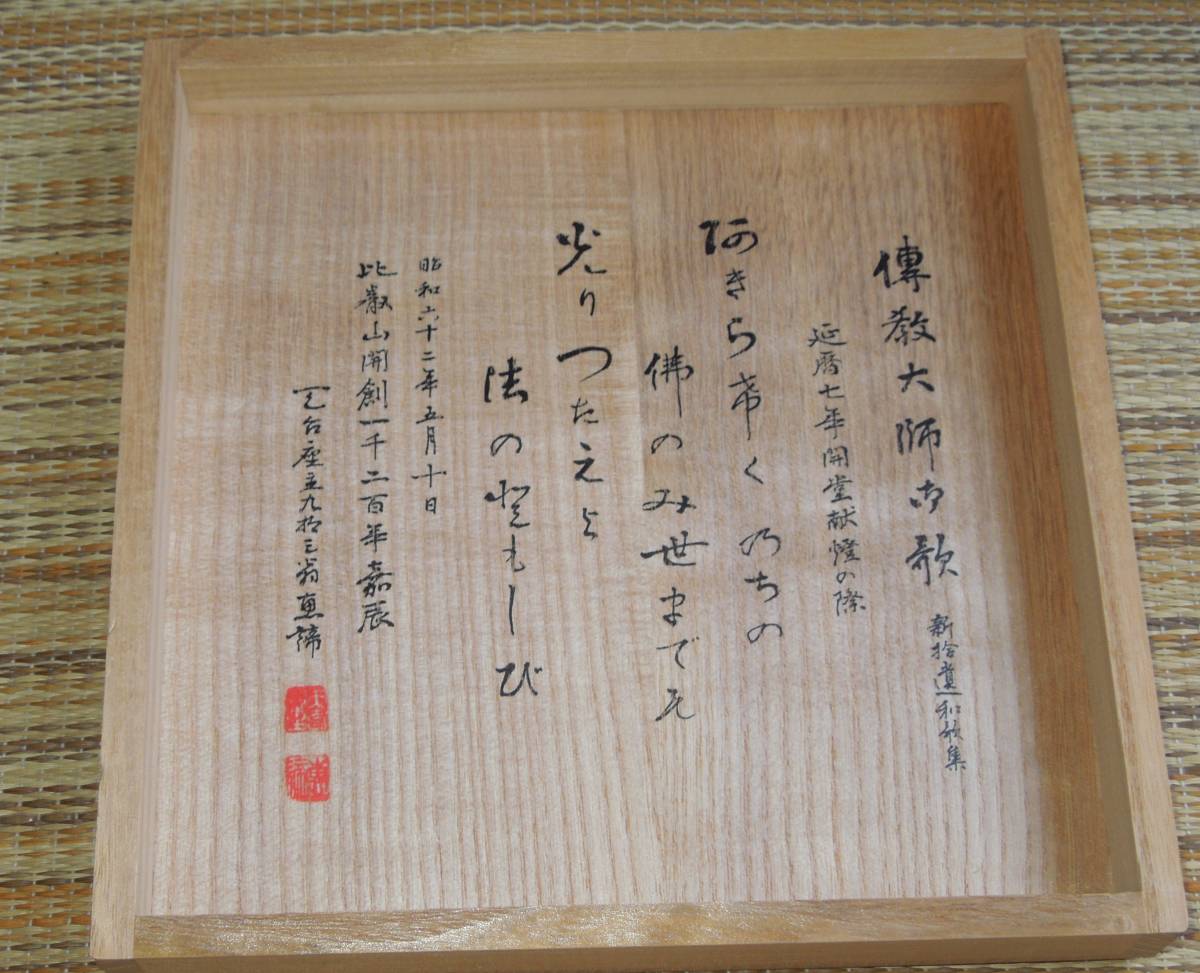 傳教大師御歌 新拾遺和歌集
延暦七年開堂献燈の際
阿きら希く乃ちの
佛のみ世までも
光りつたえよ
法の登もしび
昭和六十二年五月十日
比叡山開創一千二百年嘉辰
天台座主九拾三翁恵諦